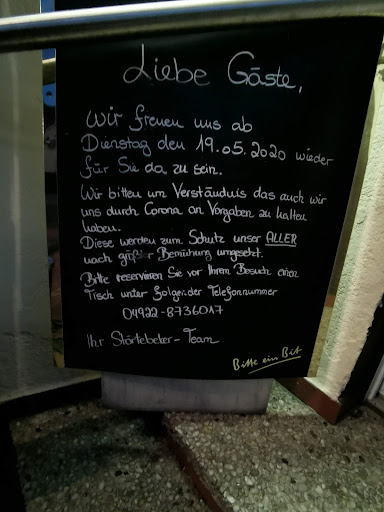 Liebe Gäste,
Wir freuen uns ab
Dienstag den 19.05.2020 wieder
für Sie da zu sein.
Wir bitten um Verständnis das auch wir
uns durch Corona an Vorgaben zu halten
haben.
Diese werden zum Schutz unser ALLER
nach größter Bemühung umgesetzt.
Bitte reservieren Sie vor Ihrem Besuch einen
Tisch unter folgender Telefonnummer
04922-8736017
Ihr Störtebeker-Team
Bitte ein Bit